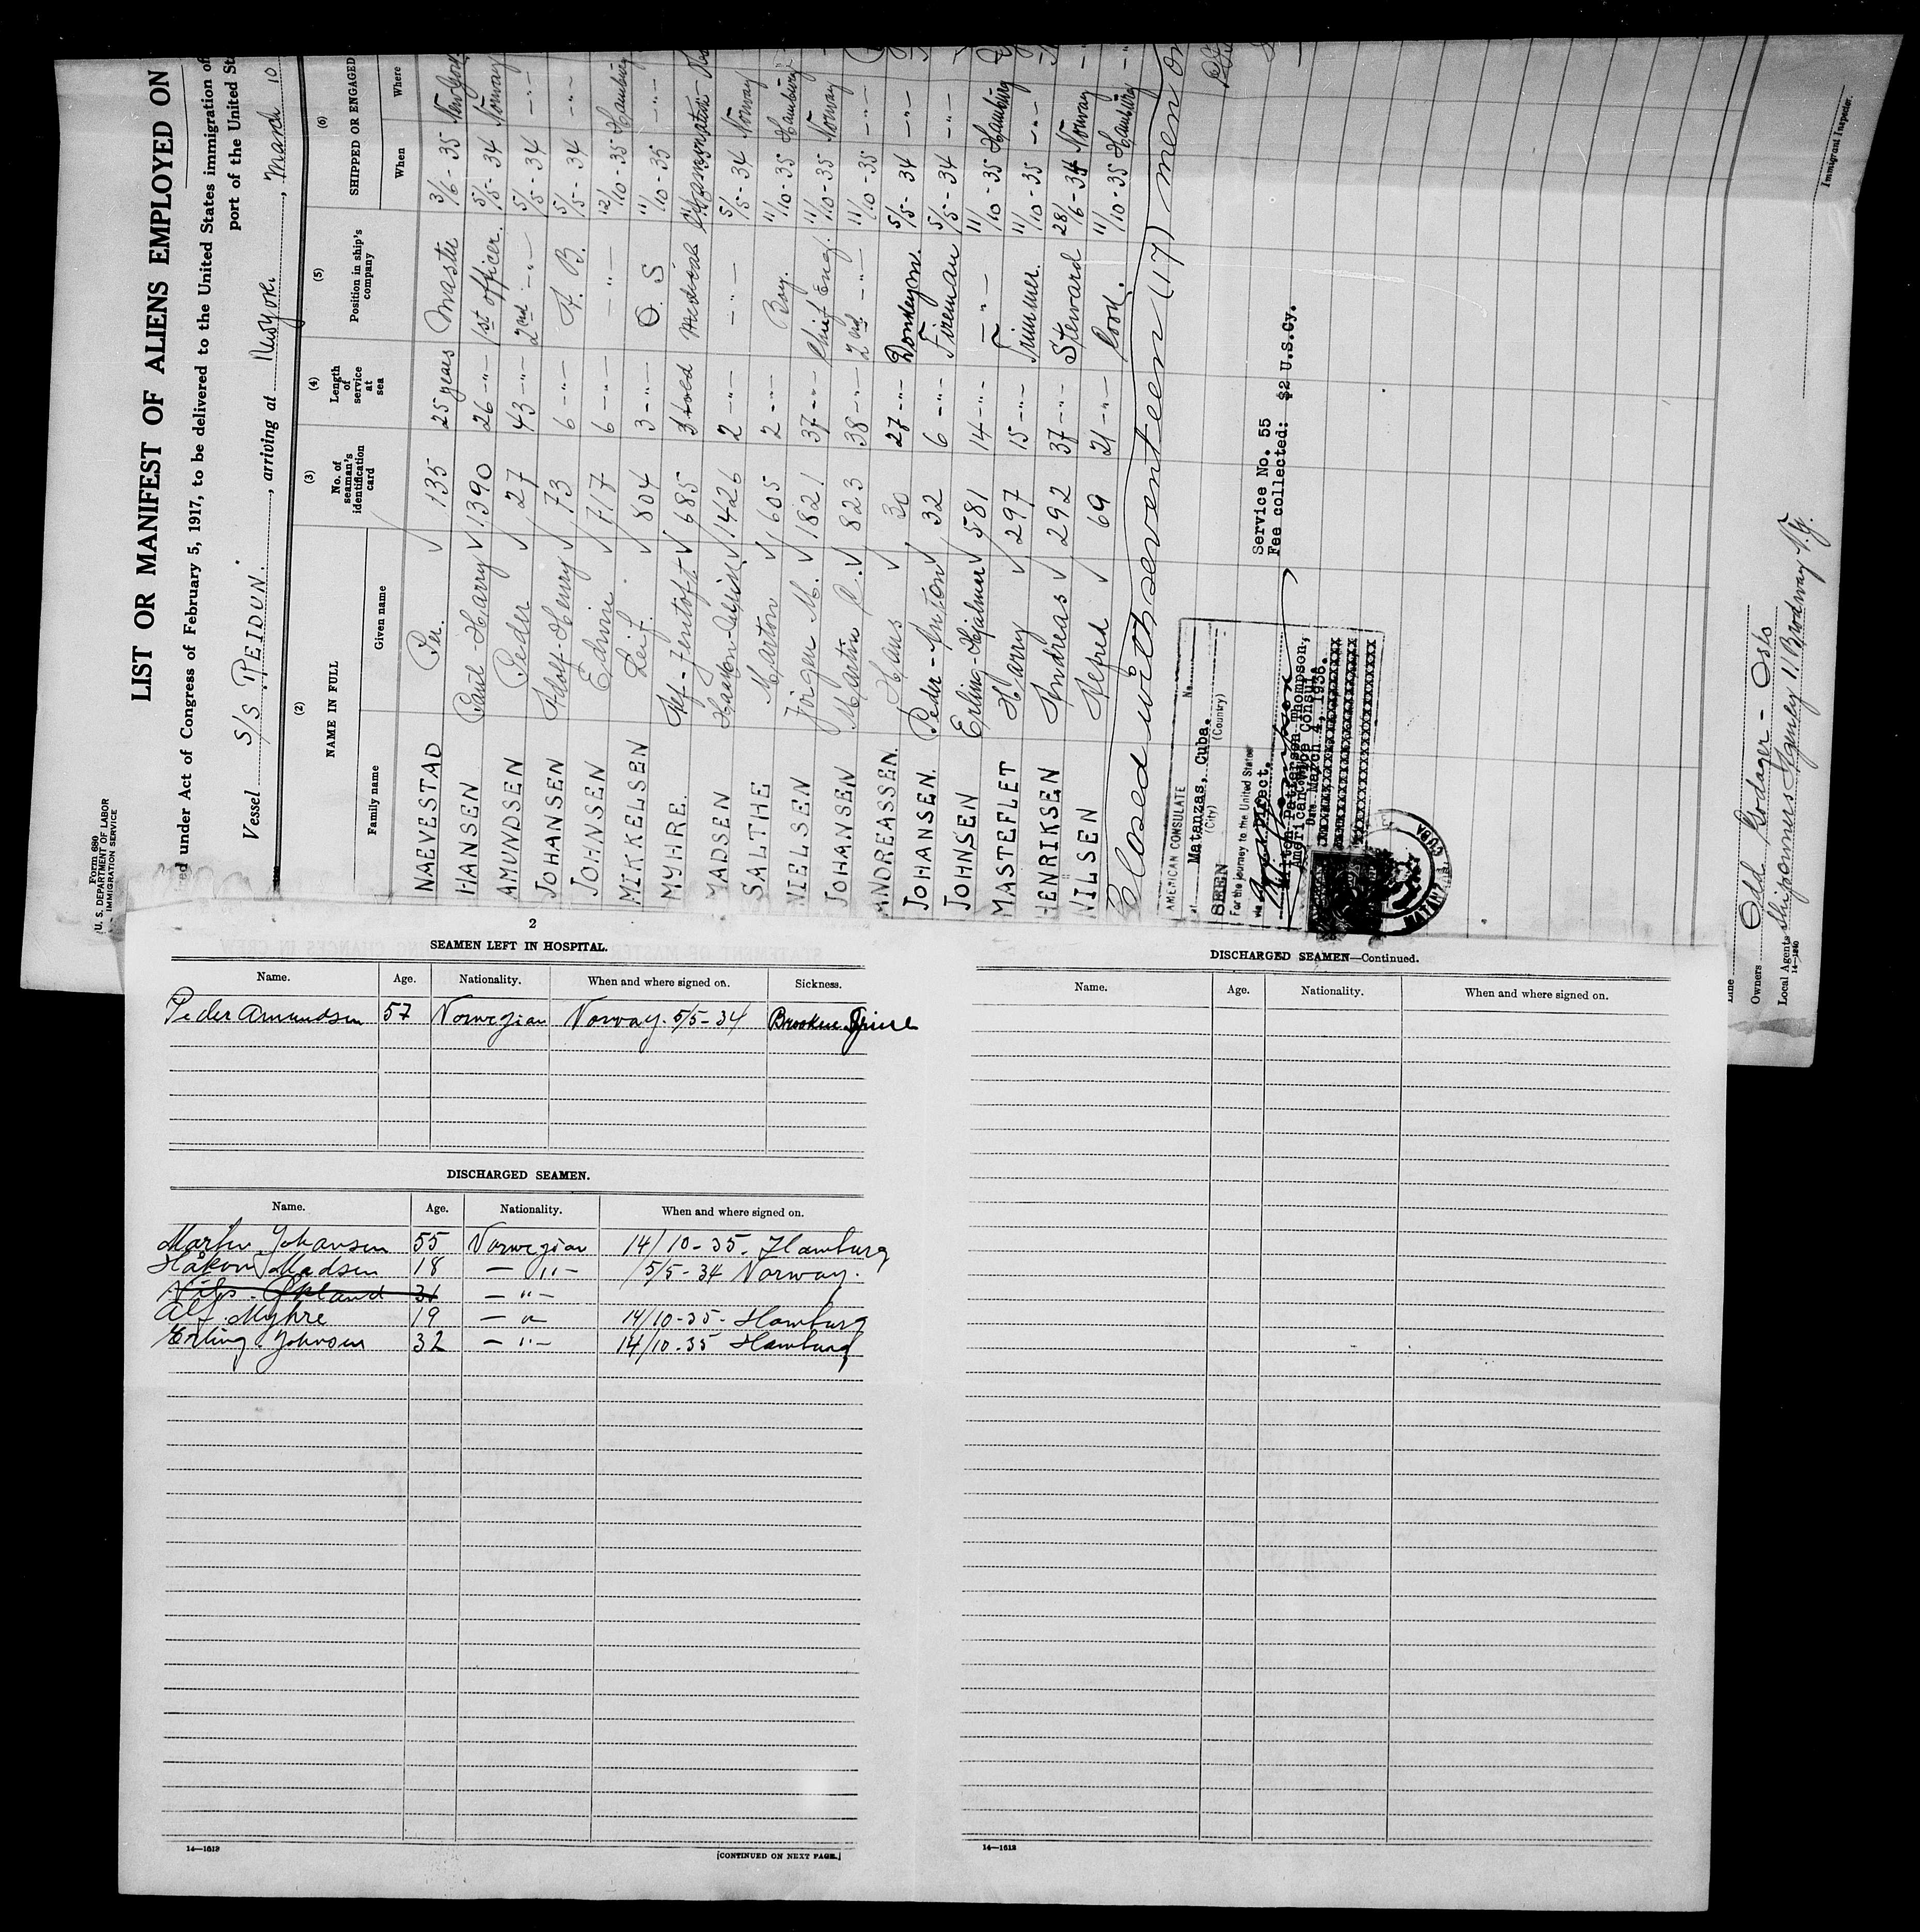 Form 680
U. S. DEPARTMENT OF LABOR
IMMIGRATION SERVICE
LIST OR MANIFEST OF ALIENS EMPLOYED ON
ed under Act of Congress of February 5, 1917, to be delivered to the United States immigration of
port of the United St
Vessel S/S REIDUN. , arriving at New York. , March 10
(2) (3) (4) (5) (6)
NAME IN FULL No. of seaman's identification card Length of service at sea Position in ship's company SHIPPED OR ENGAGED
Family name Given name When Where
NAEVESTAD Per. √ 135 25 years Master 3/6-35 New York
HANSEN Paul-Harry √ 1390 26 -"- 1st officer. 5/5-34 Norway
AMUNDSEN Peder √ 27 43 -"- 2nd -"- 5/5-34 -"-
JOHANSEN Adolf-Henry √ 73 6 -"- A. B. 5/5-34 -"-
JOHNSEN Edwin √ 717 6 -"- -"- 12/10-35 Hamburg
MIKKELSEN Leif. √ 804 3 -"- O. S 11/10-35 -"-
MYHRE. √ 685
MADSEN √ 1426 2 -"- -"- 5/5-34 Norway
SALTHE Marton √ 605 2 -"- Boy. 11/10-35 Hamburg
NIELSEN Jörgen M. √ 1821 37 -"- Chief Eng. 11/10-35 Norway
JOHANSEN Martin √ 823 38 -"- 2nd -"- 11/10-35 -"-
ANDREASSEN. Hans √ 30 27 -"- Donkeym. 5/5-34 -"-
JOHANSEN. Peder-Anton √ 32 6 -"- Fireman 5/5-34 -"-
JOHNSEN Erling-Hjalmer √ 581 14 -"- -"- 11/10-35 Hamburg
MASTEFLET Harry √ 297 15 -"- Trimmer. 11/10-35 -"-
HENRIKSEN Andreas √ 292 37 -"- Steward 28/6-34 Norway
NILSEN Alfred √ 69 21 -"- Cook. 11/10-35 Hamburg
Closed with seventeen (17) men on
AMERICAN CONSULATE No.
at Matanzas, Cuba.
(City) (Country)
SEEN
For the journey to the United States
via Direct.
Patterson Thompson,
American Vice Consul
Date March 4, 1936.
Service No. 55
Fee collected: $2 U.S.Cy.
CUBA
Line
Owners Odd Godager - Oslo
Local Agents Shipowners Agency 11 Brodway N.Y.
14—1240
Immigrant Inspector.
2
SEAMEN LEFT IN HOSPITAL.
Name. Age. Nationality. When and where signed on. Sickness.
Peder Amundsen 57 Norwegian Norway. 5/5-34 Brooken
DISCHARGED SEAMEN.
Name. Age. Nationality. When and where signed on.
Martin Johansen 55 Norwegian 14/10-35. Hamburg
Håkon Madsen 18 -"- 5/5-34 Norway.
Nils Økland 31 -"-
Alf. Myhre 19 -"- 14/10-35. Hamburg
Erling Johnsen 32 -"- 14/10-35 Hamburg
14—1613
[CONTINUED ON NEXT PAGE.]
DISCHARGED SEAMEN—Continued.
Name. Age. Nationality. When and where signed on.
14—1613